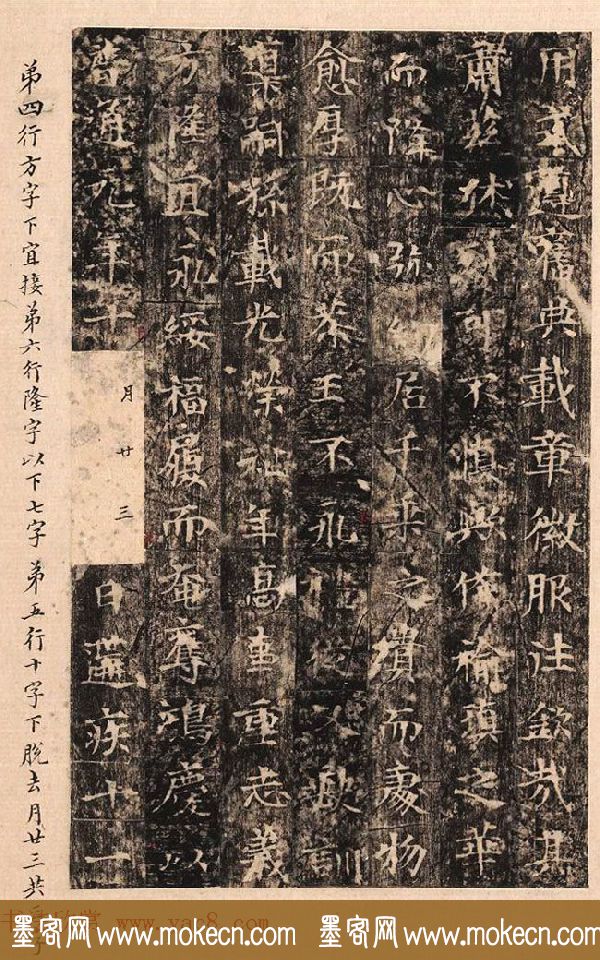 用玄遵舊典載章徽服往欽哉其
肅茲休烈可不慎歟備褕瑱之華
而降心弥居千乘之而處物
愈厚既而恭王不永歿訓
藐嗣孫載光榮祉年高事重志義
方隆宜永綏福履而奄奪鴻慶以
普通元年十月廿三日遘疾十一
弟四行方字下宜接弟六行隆字以下七字 弟五行十字下脫去月廿三共字
www.yac8.com
墨客网 www.mokecn.com 墨客网 www.mokecn.com